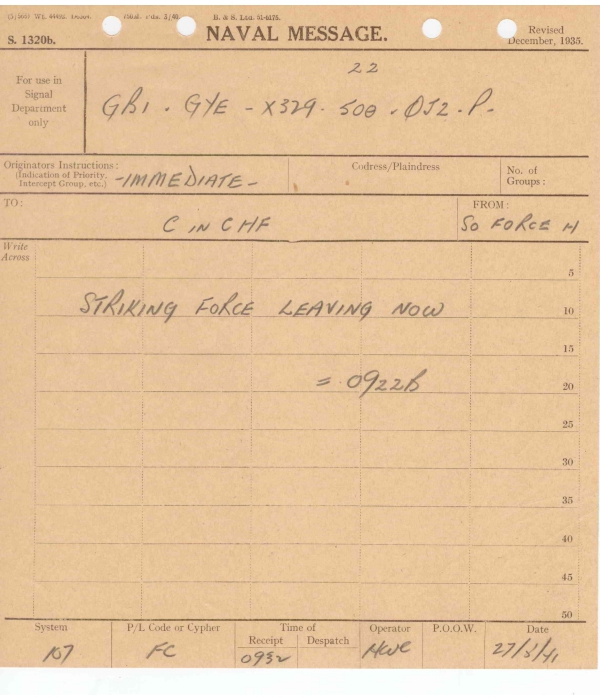 B. & S. Ltd. 51-6175.
S. 1320b.
NAVAL MESSAGE.
Revised
December, 1935.
For use in
Signal
Department
only
22
GBI . GYE - X329 . 500 . OJ2 . P -
Originators Instructions :
(Indication of Priority,
Intercept Group, etc.)
- IMMEDIATE -
Codress/Plaindress
No. of
Groups :
TO:
C IN C HF
FROM:
SO FORCE H
Write
Across
5
STRIKING FORCE LEAVING NOW
10
15
= 0922B
20
25
30
35
40
45
50
System
P/L Code or Cypher
Time of
Receipt
Despatch
Operator
P.O.O.W.
Date
107
FC
0932
27/5/41